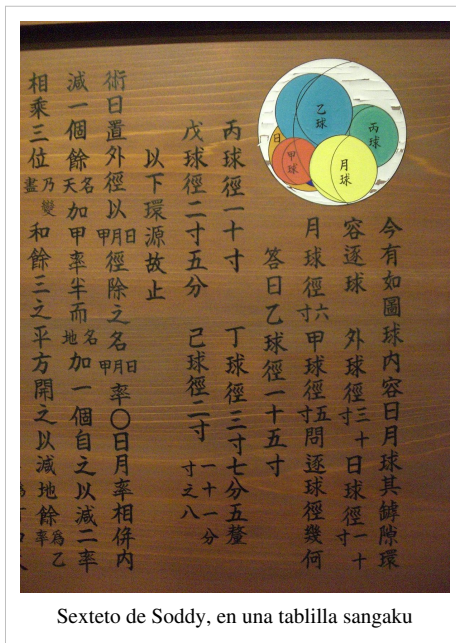 乙球
丙球
日
甲球
月球
今有如圖球内容日月球其罅隙環
容逐球 外球徑三十寸 日球徑一十寸
月球徑六寸甲球徑五寸問逐球徑幾何
答曰乙球徑一十五寸
丙球徑一十寸 丁球徑三寸七分五釐
戊球徑二寸五分 己球徑二寸一十一分寸之八
以下環源故止
術曰置外徑以日月甲徑除之名日月甲率〇日月率相併内
減一個餘名天加甲率半而名地加一個自之以減二率
相乘三位乃變盡和餘三之平方開之以減地餘爲乙率
Sexteto de Soddy, en una tablilla sangaku